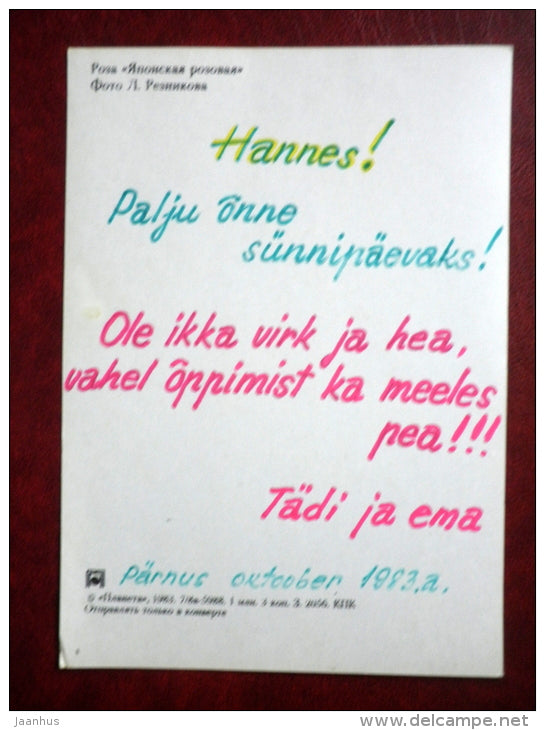 Роза «Японская розовая»
Фото Л. Резникова
Hannes!
Palju õnne
sünnipäevaks!
Ole ikka virk ja hea,
vahel õppimist ka meeles
pea!!!
Tädi ja ema
Pärnus oktoober 1983.a.
© «Планета», 1983. 7/8а-5088. 1 млн. 3 коп. З. 2056. КПК
Отправлять только в конверте
jaanhus
www.delcampe.net